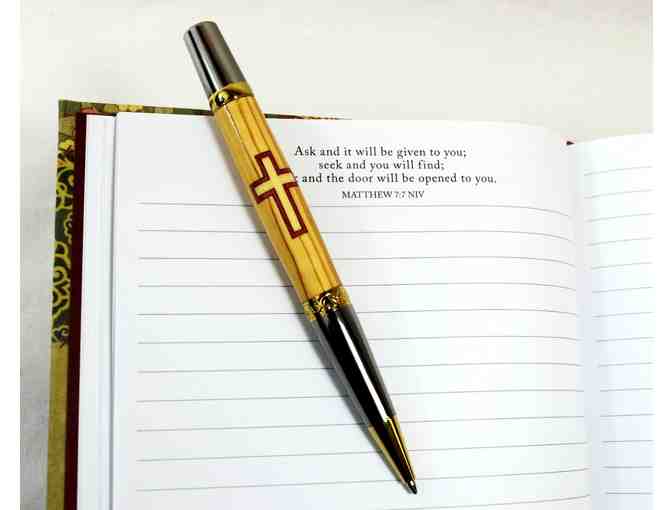 Ask and it will be given to you;
seek and you will find;
and the door will be opened to you.
MATTHEW 7:7 NIV